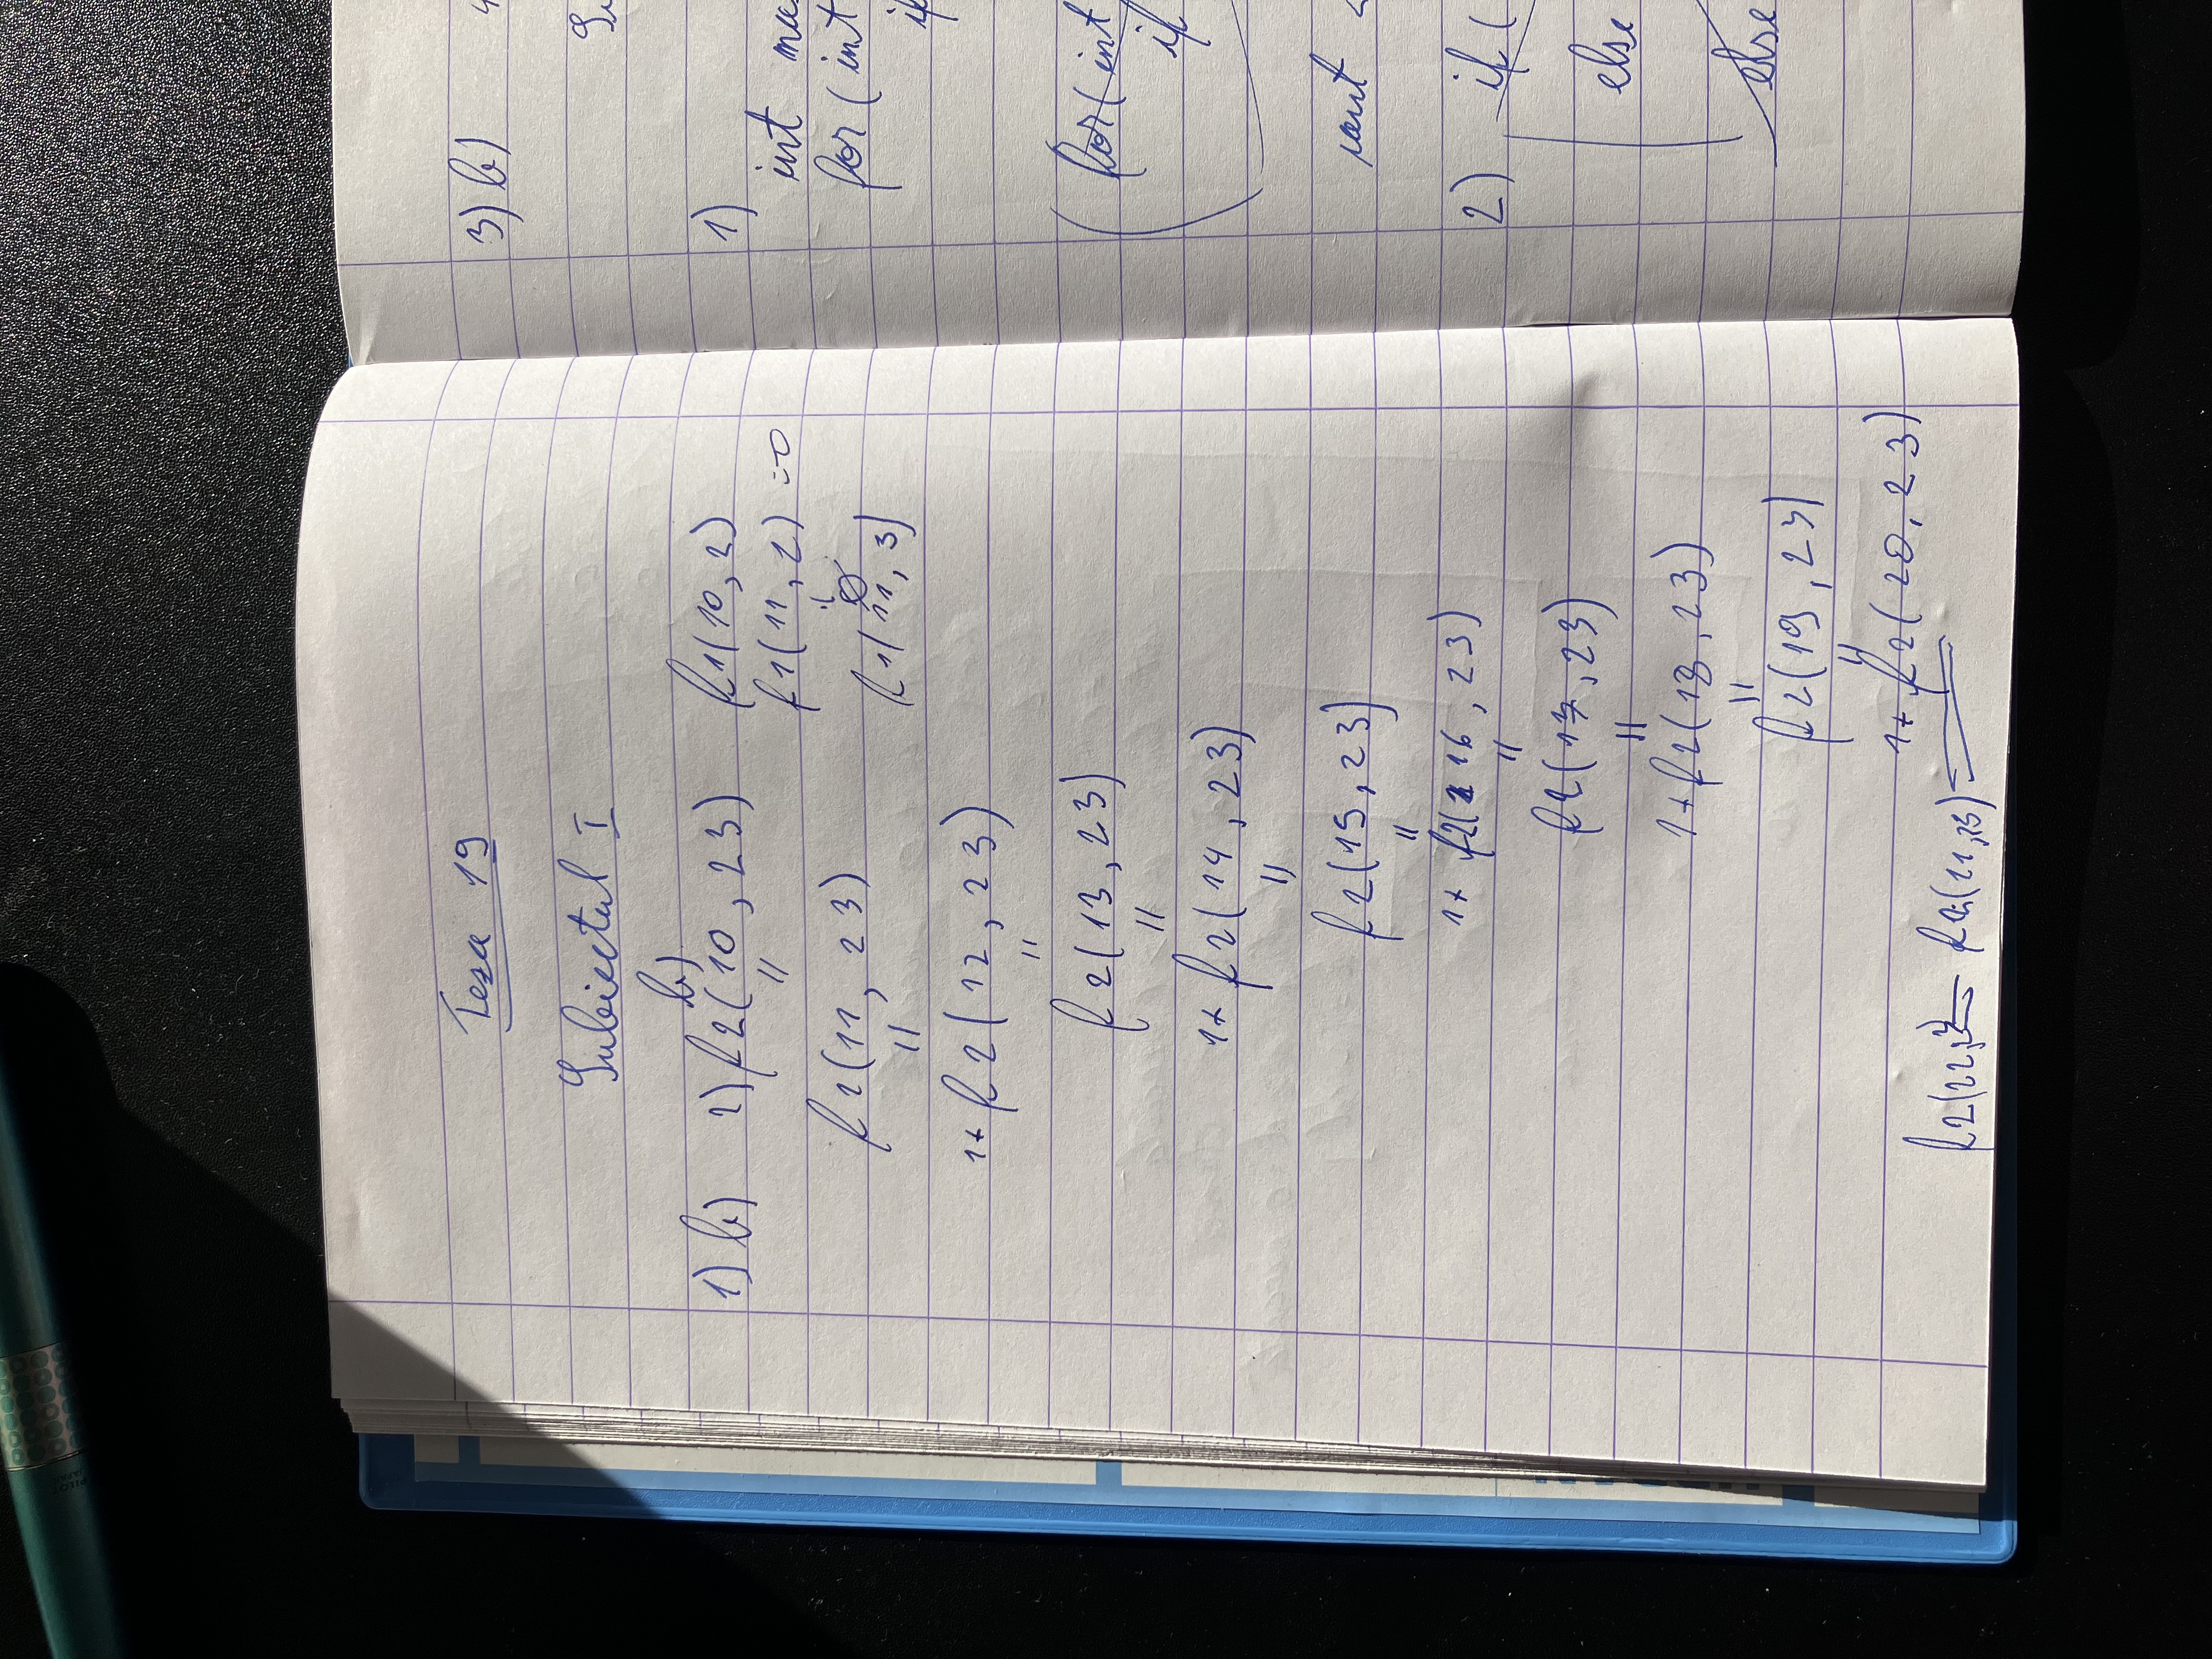 Teza 19
Subiectul I
b)
1) b) 2) f2(10, 23) f1(10, 2)
=
f1(11, 2) = 0
f2(11, 23)
=
f1(11, 3)
1+ f2(12, 23)
=
f2(13, 23)
=
1+ f2(14, 23)
=
f2(15, 23)
=
1+ f2(16, 23)
=
f2(17, 23)
=
1+ f2(18, 23)
=
f2(19, 23)
=
1+ f2(20, 23)
f2(22, = (21,23) =
3) b) 4
1)
int
for( int
if
for( int
if
2) if (
else
else